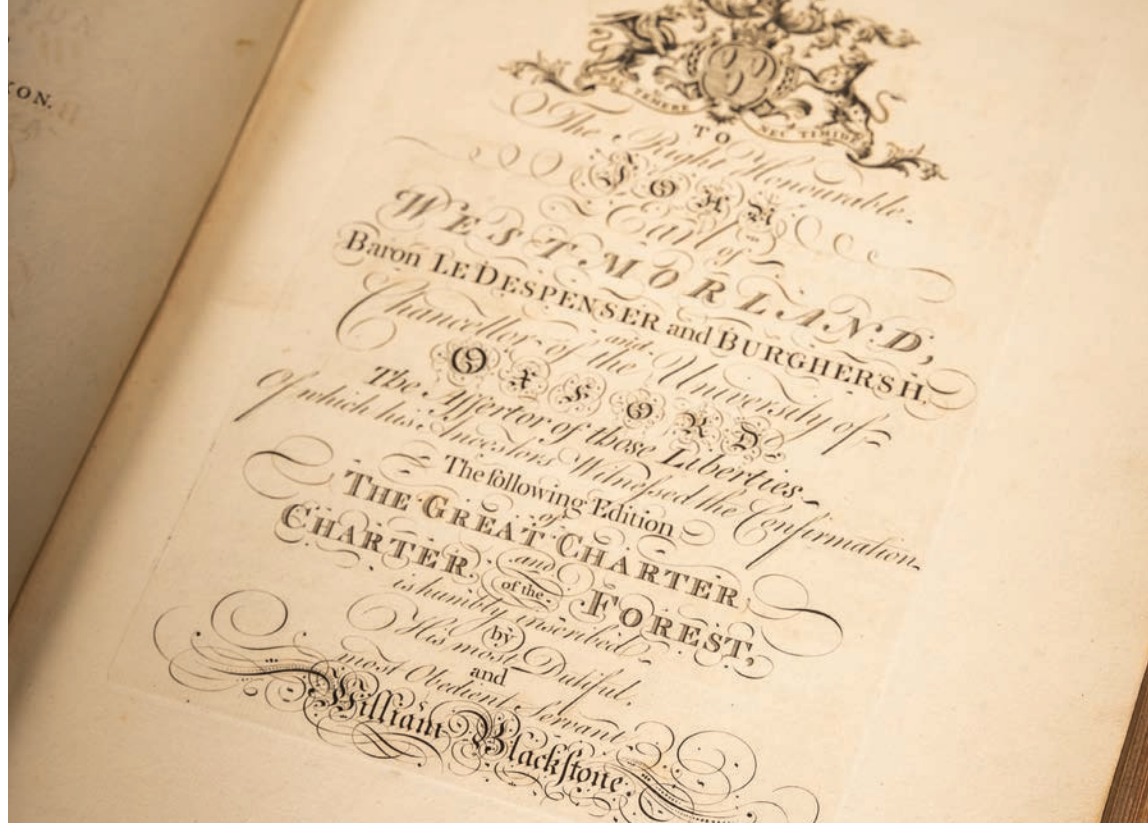 ON.
NEC TEMERE NEC TIMIDE
TO
The Right Honourable
JOHN
Earl of
WESTMORLAND,
Baron LE DESPENSER and BURGHERSH,
and
Chancellor of the University of
OXFORD
The Aſſertor of thoſe Liberties
Of which his Anceſtors Witneſſed the Confirmation
The following Edition
of
THE GREAT CHARTER
and
CHARTER of the FOREST,
is humbly inscribed
by
His moſt Dutiful,
and
moſt Obedient Servant
William Blackſtone.